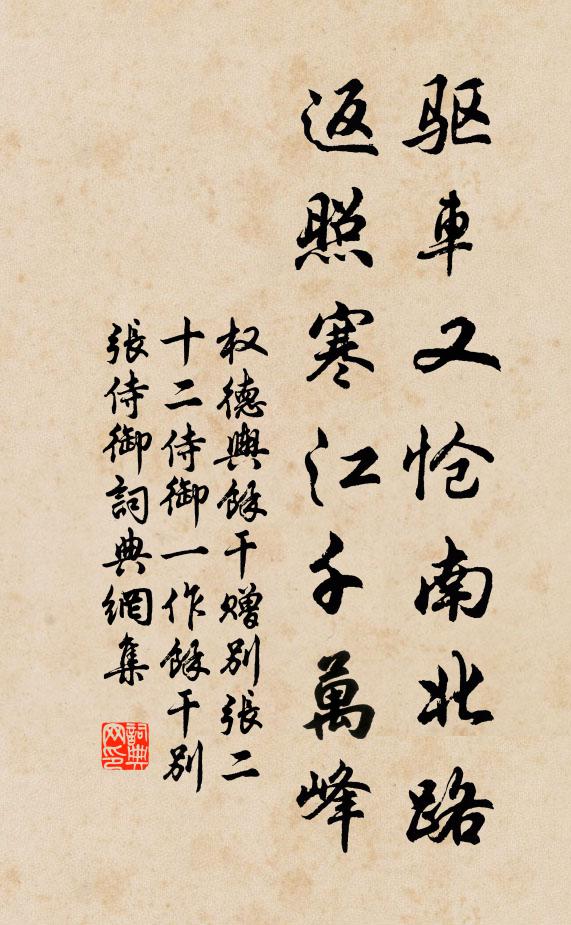 驱車又怆南北路
返照寒江千萬峰
权德輿餘干赠别張二
十二侍御一作餘干别
張侍御詞典網集
詞典网印